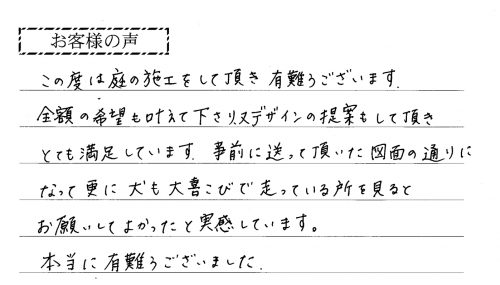 お客様の声
この度は庭の施工をして頂き 有難うございます.
全額の希望も叶えて下さり、又デザインの提案もして頂き
とても満足しています. 事前に送って頂いた図面の通りに
なって更に 犬も大喜こびで走っている所を見ると
お願いしてよかったと実感しています。
本当に有難うございました.